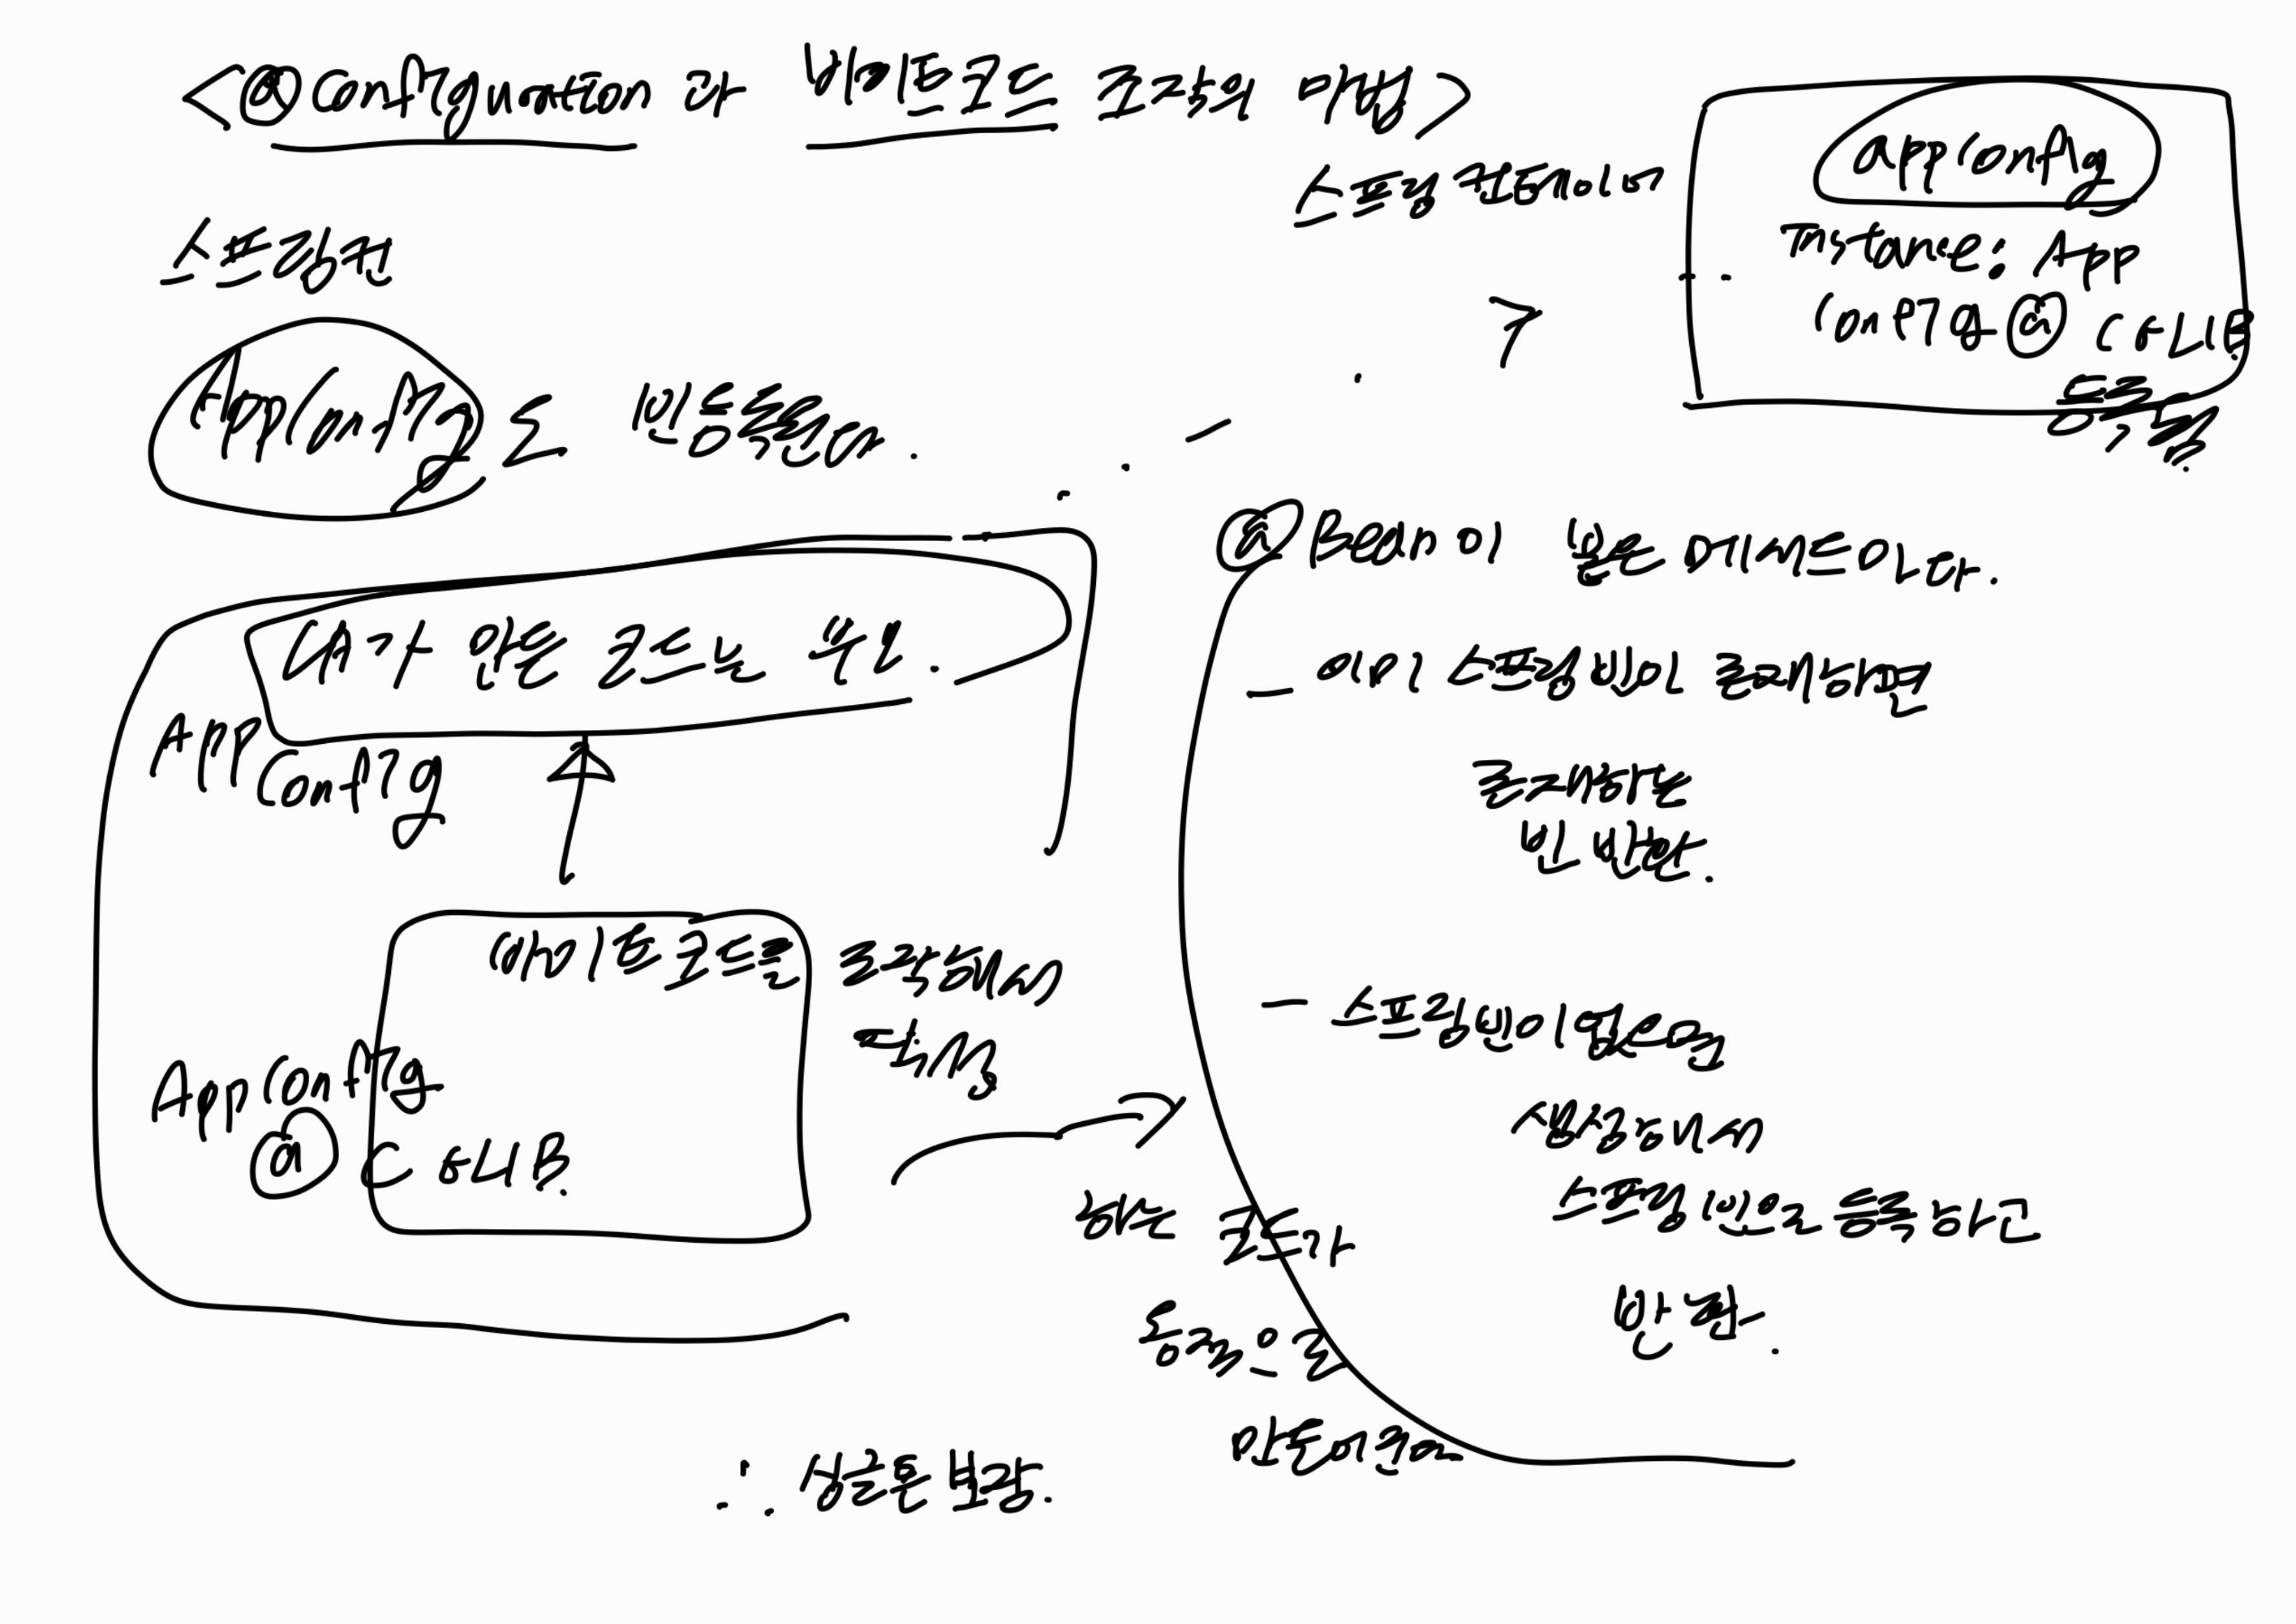 <@Configuration 과 바이트코드 조작의 마법>
스프링 컨테이너
appConfig
Instance: App
Config@CGLIB
등록됨
스프링컨
AppConfig도 빈등록된다.
내가 만든 코드는 무시.
App
Config
바이트코드를 조작해서
AppConfig
@CGLIB.
@Bean이 붙은 메서드마다.
- 이미 스프링빈이 존재하면
존재하는
빈 반환.
- 스프링빈이 없으면
생성해서
스프링 빈으로 등록하고
반환.
하는 코드가
동적으로
만들어진다
∴ 싱글톤 보장.